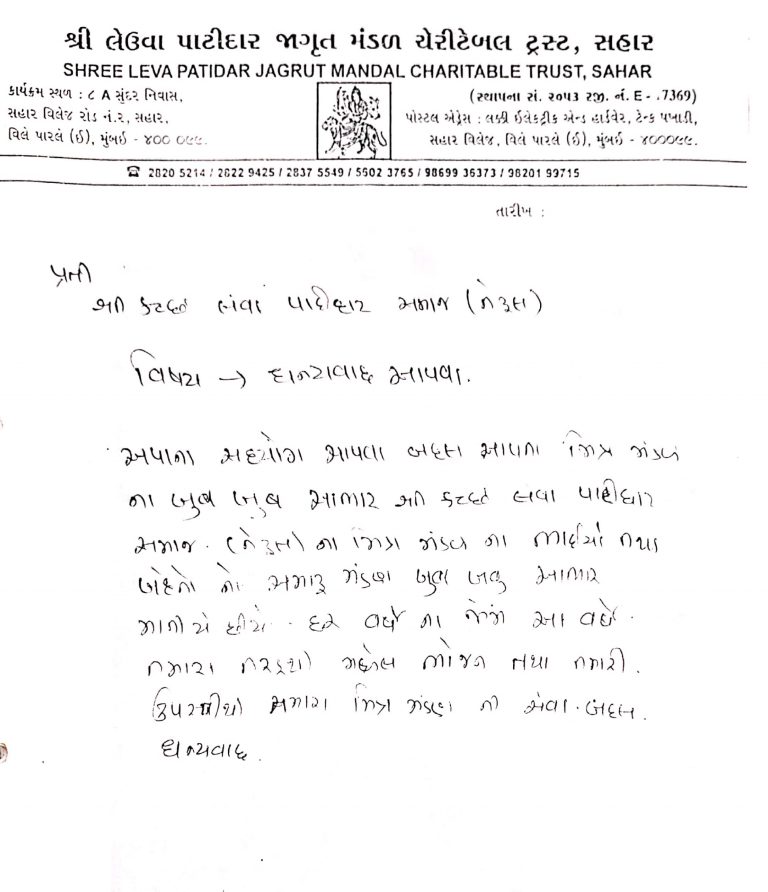 શ્રી લેઉવા પાટીદાર જાગૃત મંડળ ચેરીટેબલ ટ્રસ્ટ, સહાર
SHREE LEVA PATIDAR JAGRUT MANDAL CHARITABLE TRUST, SAHAR
કાર્યક્રમ સ્થળ : ૮ A સુંદર નિવાસ,
સહાર વિલેજ રોડ નં.૨, સહાર,
વિલે પારલે (ઈ), મુંબઈ - ૪૦૦ ૦૯૯.
(સ્થાપના સં. ૨૦૫૩ રજી. નં. E - .7369)
પોસ્ટલ એડ્રેસ : લક્કી ઈલેક્ટ્રીક એન્ડ હાર્ડવેર, ટેન્ક પખાડી,
સહાર વિલેજ, વિલે પારલે (ઈ), મુંબઈ - ૪૦૦૦૯૯.
☎ 2820 5214 / 2822 9425 / 2837 5549 / 5502 3765 / 98699 36373 / 98201 99715
તારીખ :
પ્રતી
શ્રી કચ્છ લેવા પાટીદાર સમાજ (નેરુલ)
વિષય → ધન્યવાદ આપવા.
અપાના સહયોગ આપવા બદલ આપના મિત્ર મંડળ
ના ખુબ ખુબ આભાર શ્રી કચ્છ લેવા પાટીદાર
સમાજ. (નેરુલ) ના મિત્ર મંડળ ના ભાઈઓ તથા
બહેનો નો અમારુ મંડળ ખુબ ખુબ આભાર
માનીયે છીયે. દર વર્ષે ના જેમ આ વર્ષે.
તમારા તરફથી ભોજન તથા તમારી.
અમારા મિત્ર મંડળ ની સેવા. બદલ.
ધન્યવાદ.